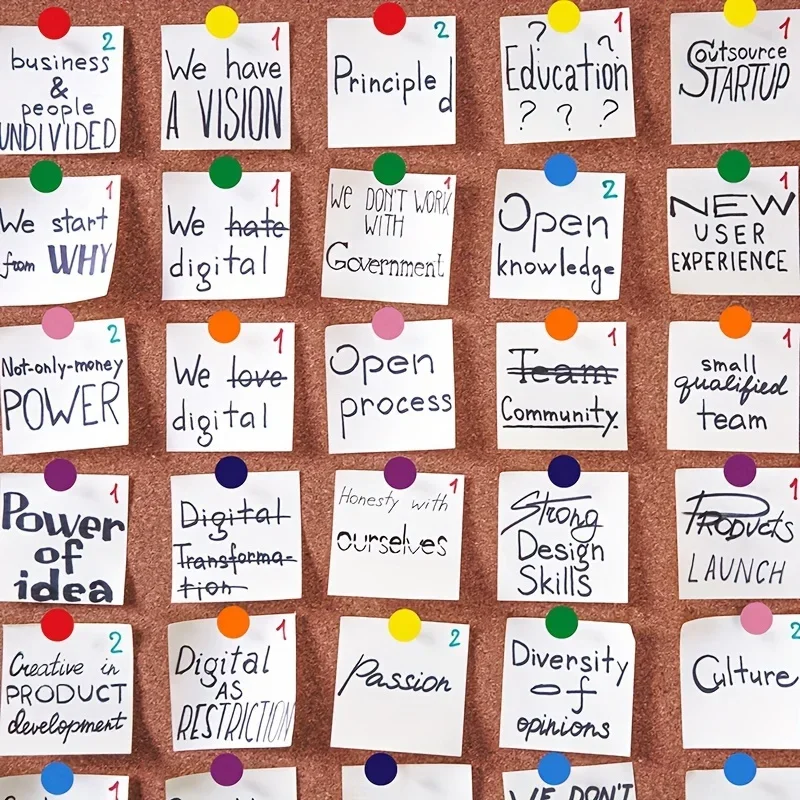 2
business
&
people
UNDIVIDED
1
We have
A VISION
2
Principled
1
? ?
Education
? ? ?
1
Outsource
STARTUP
1
We start
from WHY
1
We hate
digital
1
We DON'T WORK
WITH
Government
2
Open
knowledge
1
NEW
USER
EXPERIENCE
2
Not-only-money
POWER
1
We love
digital
Open
process
1
Team
Community.
1
small
qualified
team
1
Power
of
idea
Digital
Transforma-
tion
1
Honesty with
ourselves
Strong
Design
Skills
1
Products
LAUNCH
2
Creative in
PRODUCT
development
1
Digital
AS
RESTRICTION
2
Passion
Diversity
of
opinions
2
Culture
1
WE DON'T